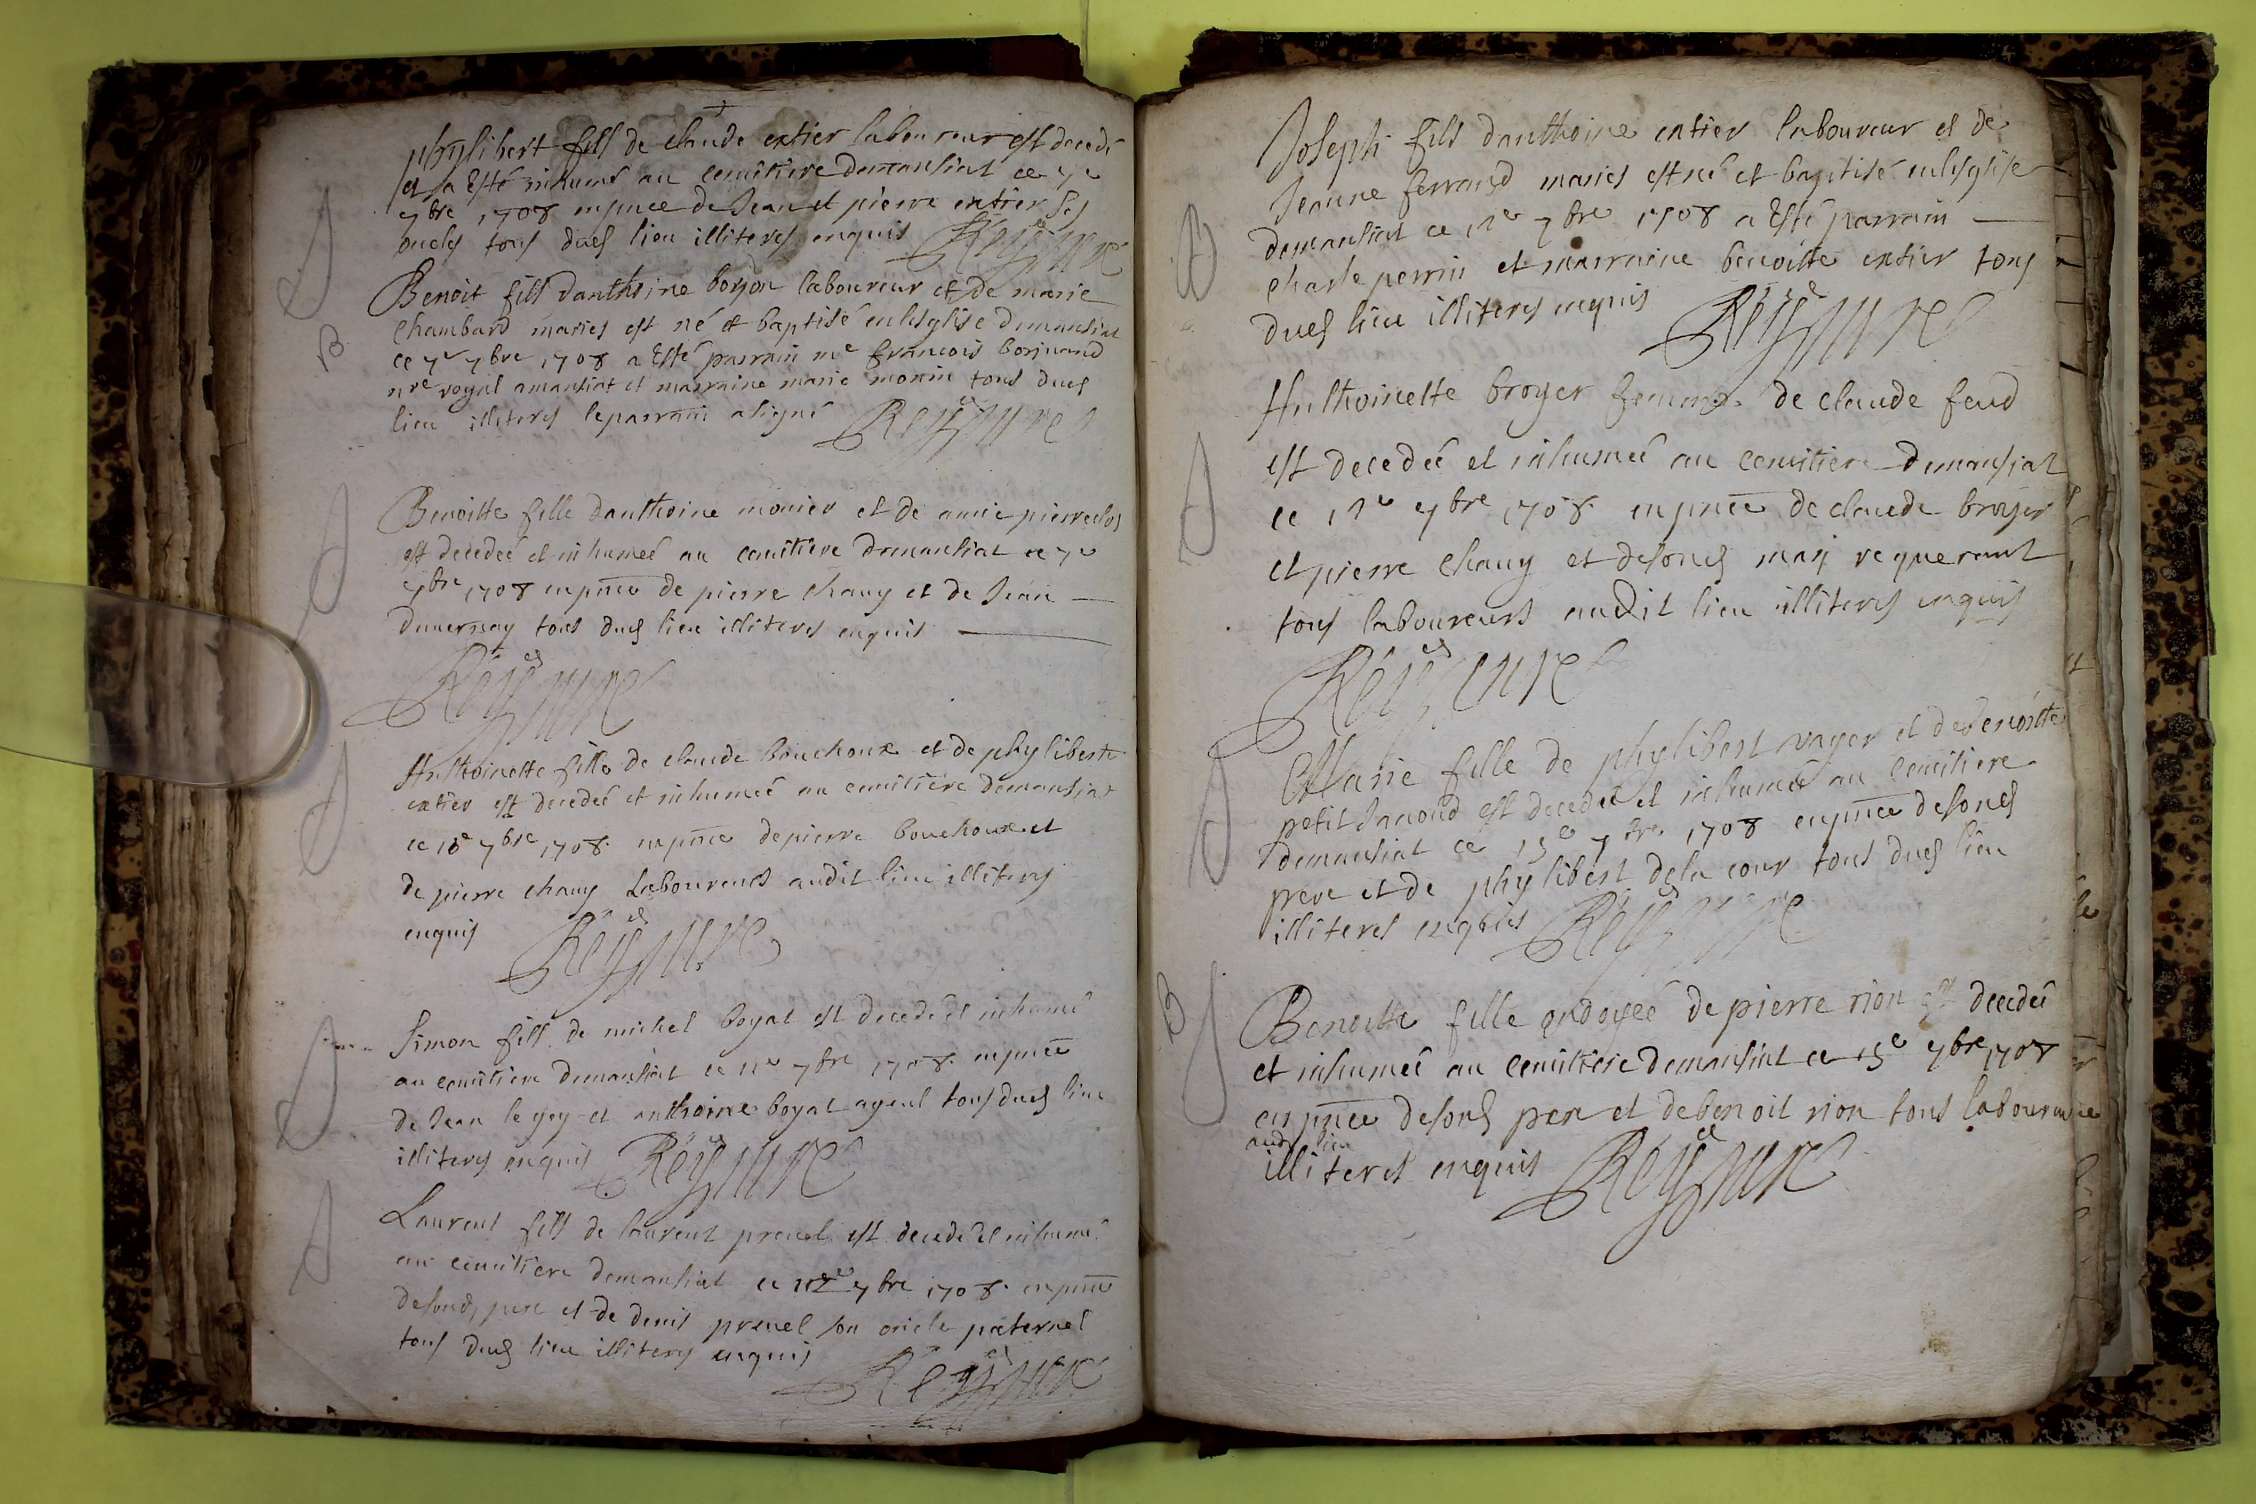 phylibert fils de claude extier laboureur est decedé
et a Esté inhumé au cemitiere demansiat ce 7e
7bre 1708 enpnce de Jean et pierre extier ses
oncles tous dues lieu illiteres enquis Reyss cure
B
Benoit fils danthoine borjon laboureur et de marie
Chambard maries est né et baptisé enlesglise demansiat
ce 7e 7bre 1708 a Esté parrain me francois borjnand
nre royal amansiat et marraine marie monin tous dues
lieu illiteres leparrain a signé Reyss cure
Benoitte fille danthoine monier et de amie pierreclos
est decedeé et inhumeé au cemitiere demansiat ce 7e
7bre 1708 enpnce de pierre Chauy et de Jean
duuernay tous dues lieu illiteres enquis
Reyss cure
Anthoinette fille de claude bouchoux et de phyliberte
extier est decedeé et inhumeé au cemitiere demansiat
ce 10e 7bre 1708 enpnce depierre bouchoux et
de pierre chauy Laboureurs audit lieu illiteres
enquis Reyss cure
Simon fils de michel boyat est decedé et inhumé
au cemitiere demansiat ce 11e 7bre 1708 enpnce
de Jean le goy et anthoine boyat ayeul tous dues lieu
illiteres enquis Reyss cure
Laurent fils de laurent preuel est decedé et inhumé
au cemitiere demansiat ce 7bre 1708 enpnce
desond pere et de denis preuel son oncle paternel
tous dues lieu illiteres enquis
Reyss cure
Joseph fils danthoine extier laboureur et de
Jeanne ferrand maries est né et baptisé enlesglise
B
demansiat ce 12e 7bre 1708 a Esté parrain
Charle perrin et marraine benoitte extier tous
dues lieu illiteres enquis Reyss cure
Anthoinette broyer femme de claude feud
est decedeé et inhumeé au cemitiere demansiat
ce 12e 7bre 1708 enpnce de claude broyer
et pierre Chauy et desond mary requerant
tous laboureurs audit lieu illiteres enquis
Reyss cure
Marie fille de phylibert uayer et de benoitte
petit Janond est decedeé et inhumeé au cemitiere
demansiat ce 15e 7bre 1708 enpnce desond
pere et de phylibert dela cour tous dues lieu
illiteres enquis Reyss cure
B
Benoitte fille ondoyeé de pierre rion est decedeé
et inhumeé au cemitiere demansiat ce 15e 7bre 1708
enpnce desond pere et debenoit rion tous laboureurs
aud lieu
illiteres enquis Reyss cure